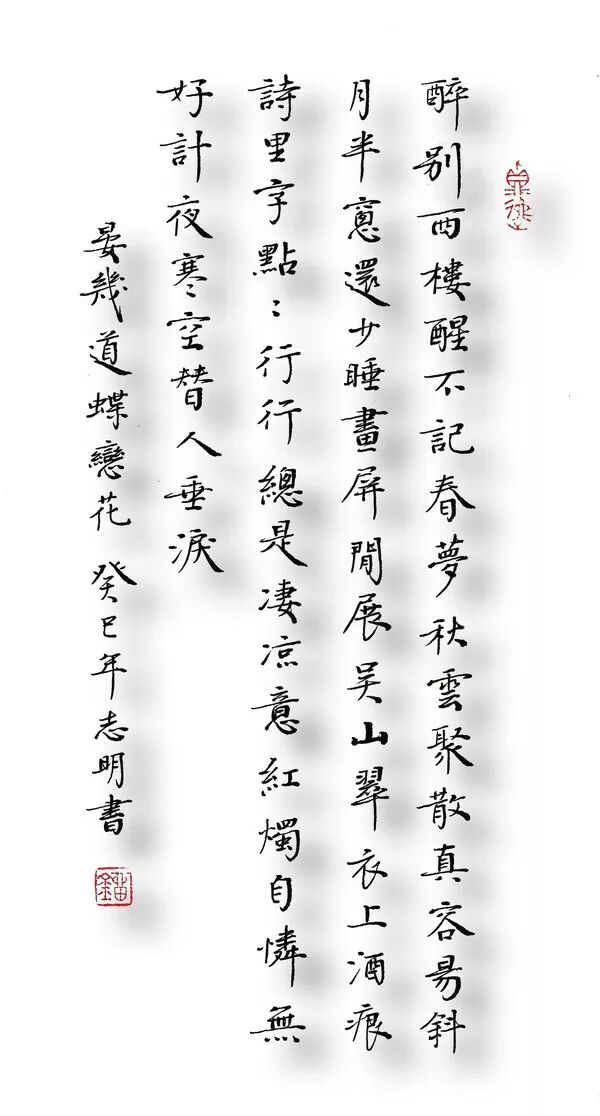 醉别西樓醒不記春夢秋雲聚散真容易斜
月半窻還少睡畫屏閒展吴山翠衣上酒痕
詩里字點〻行行總是凄凉意紅燭自憐無
好計夜寒空替人垂淚
晏幾道蝶戀花 癸巳年志明書